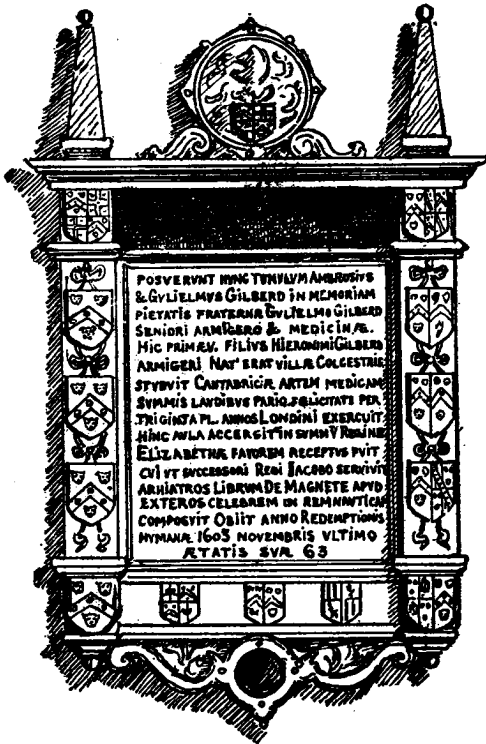 POSVERVNT HVNC TVMVLVM AMBROSIVS
& GVLIELMVS GILBERD IN MEMORIAM
PIETATIS FRATERNÆ GVLIELMO GILBERD
SENIORI ARMIGERO & MEDICINÆ.
HIC PRIMÆV. FILIVS HIERONIMI GILBERD
ARMIGERI NAT' ERAT VILLÆ COLCESTRIE
STVDVIT CANTABRIGIÆ ARTEM MEDICAM
SVMMIS LAVDIBVS PARIQ. FŒLICITATE PER
TRIGINTA PL. ANNOS LONDINI EXERCUIT
HINC AVLA ACCERSIT' IN SVMMV̄ REGINÆ
ELIZABETHÆ FAVOREM RECEPTVS FVIT
CVI VT SVCCESSORI REGI JACOBO SERVIVIT
ARHIATROS LIBRUM DE MAGNETE APVD
EXTEROS CELEBREM IN REM NAUTICAM
COMPOSVIT OBIIT ANNO REDEMPTIONIS
HVMANÆ 1603 NOVEMBRIS VLTIMO
ÆTATIS SVÆ 63